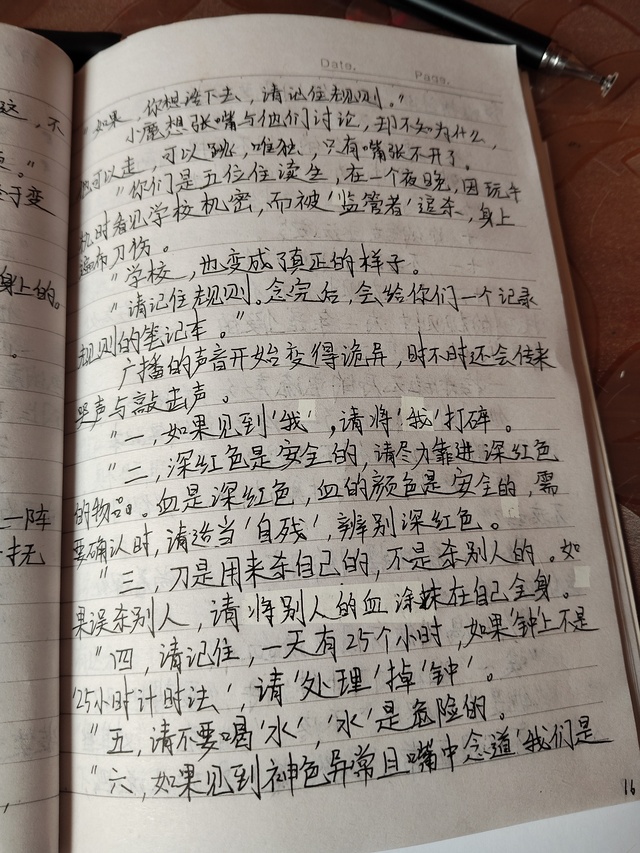 Date.
Page.
"如果，你想活下去，请记住规则。"
小鹿想张嘴与他们讨论，却不知为什么，
他可以走，可以跳，唯独，只有嘴张不开了。
"你们是五位住读生，在一个夜晚，因玩手
机时看见学校机密，而被'监管者'追杀，身上
遍布刀伤。
"学校，也变成了真正的样子。
"请记住规则。念完后，会给你们一个记录
规则的笔记本。"
广播的声音开始变得诡异，时不时还会传来
哭声与敲击声。
"一，如果见到'我'，请将'我'打碎。
"二，深红色是安全的，请尽力靠进深红色
的物品。血是深红色，血的颜色是安全的，需
要确认时，请适当'自残'，辨别深红色。
"三，刀是用来杀自己的，不是杀别人的。如
果误杀别人，请将别人的血涂抹在自己全身。
"四，请记住，一天有25个小时，如果'钟'上不是
'25小时计时法'，请'处理'掉'钟'。
"五，请不要喝'水'，'水'是危险的。
"六，如果见到神色异常且嘴中念道'我们是
16
这，不
。"
变
身上的。
。
一阵
无